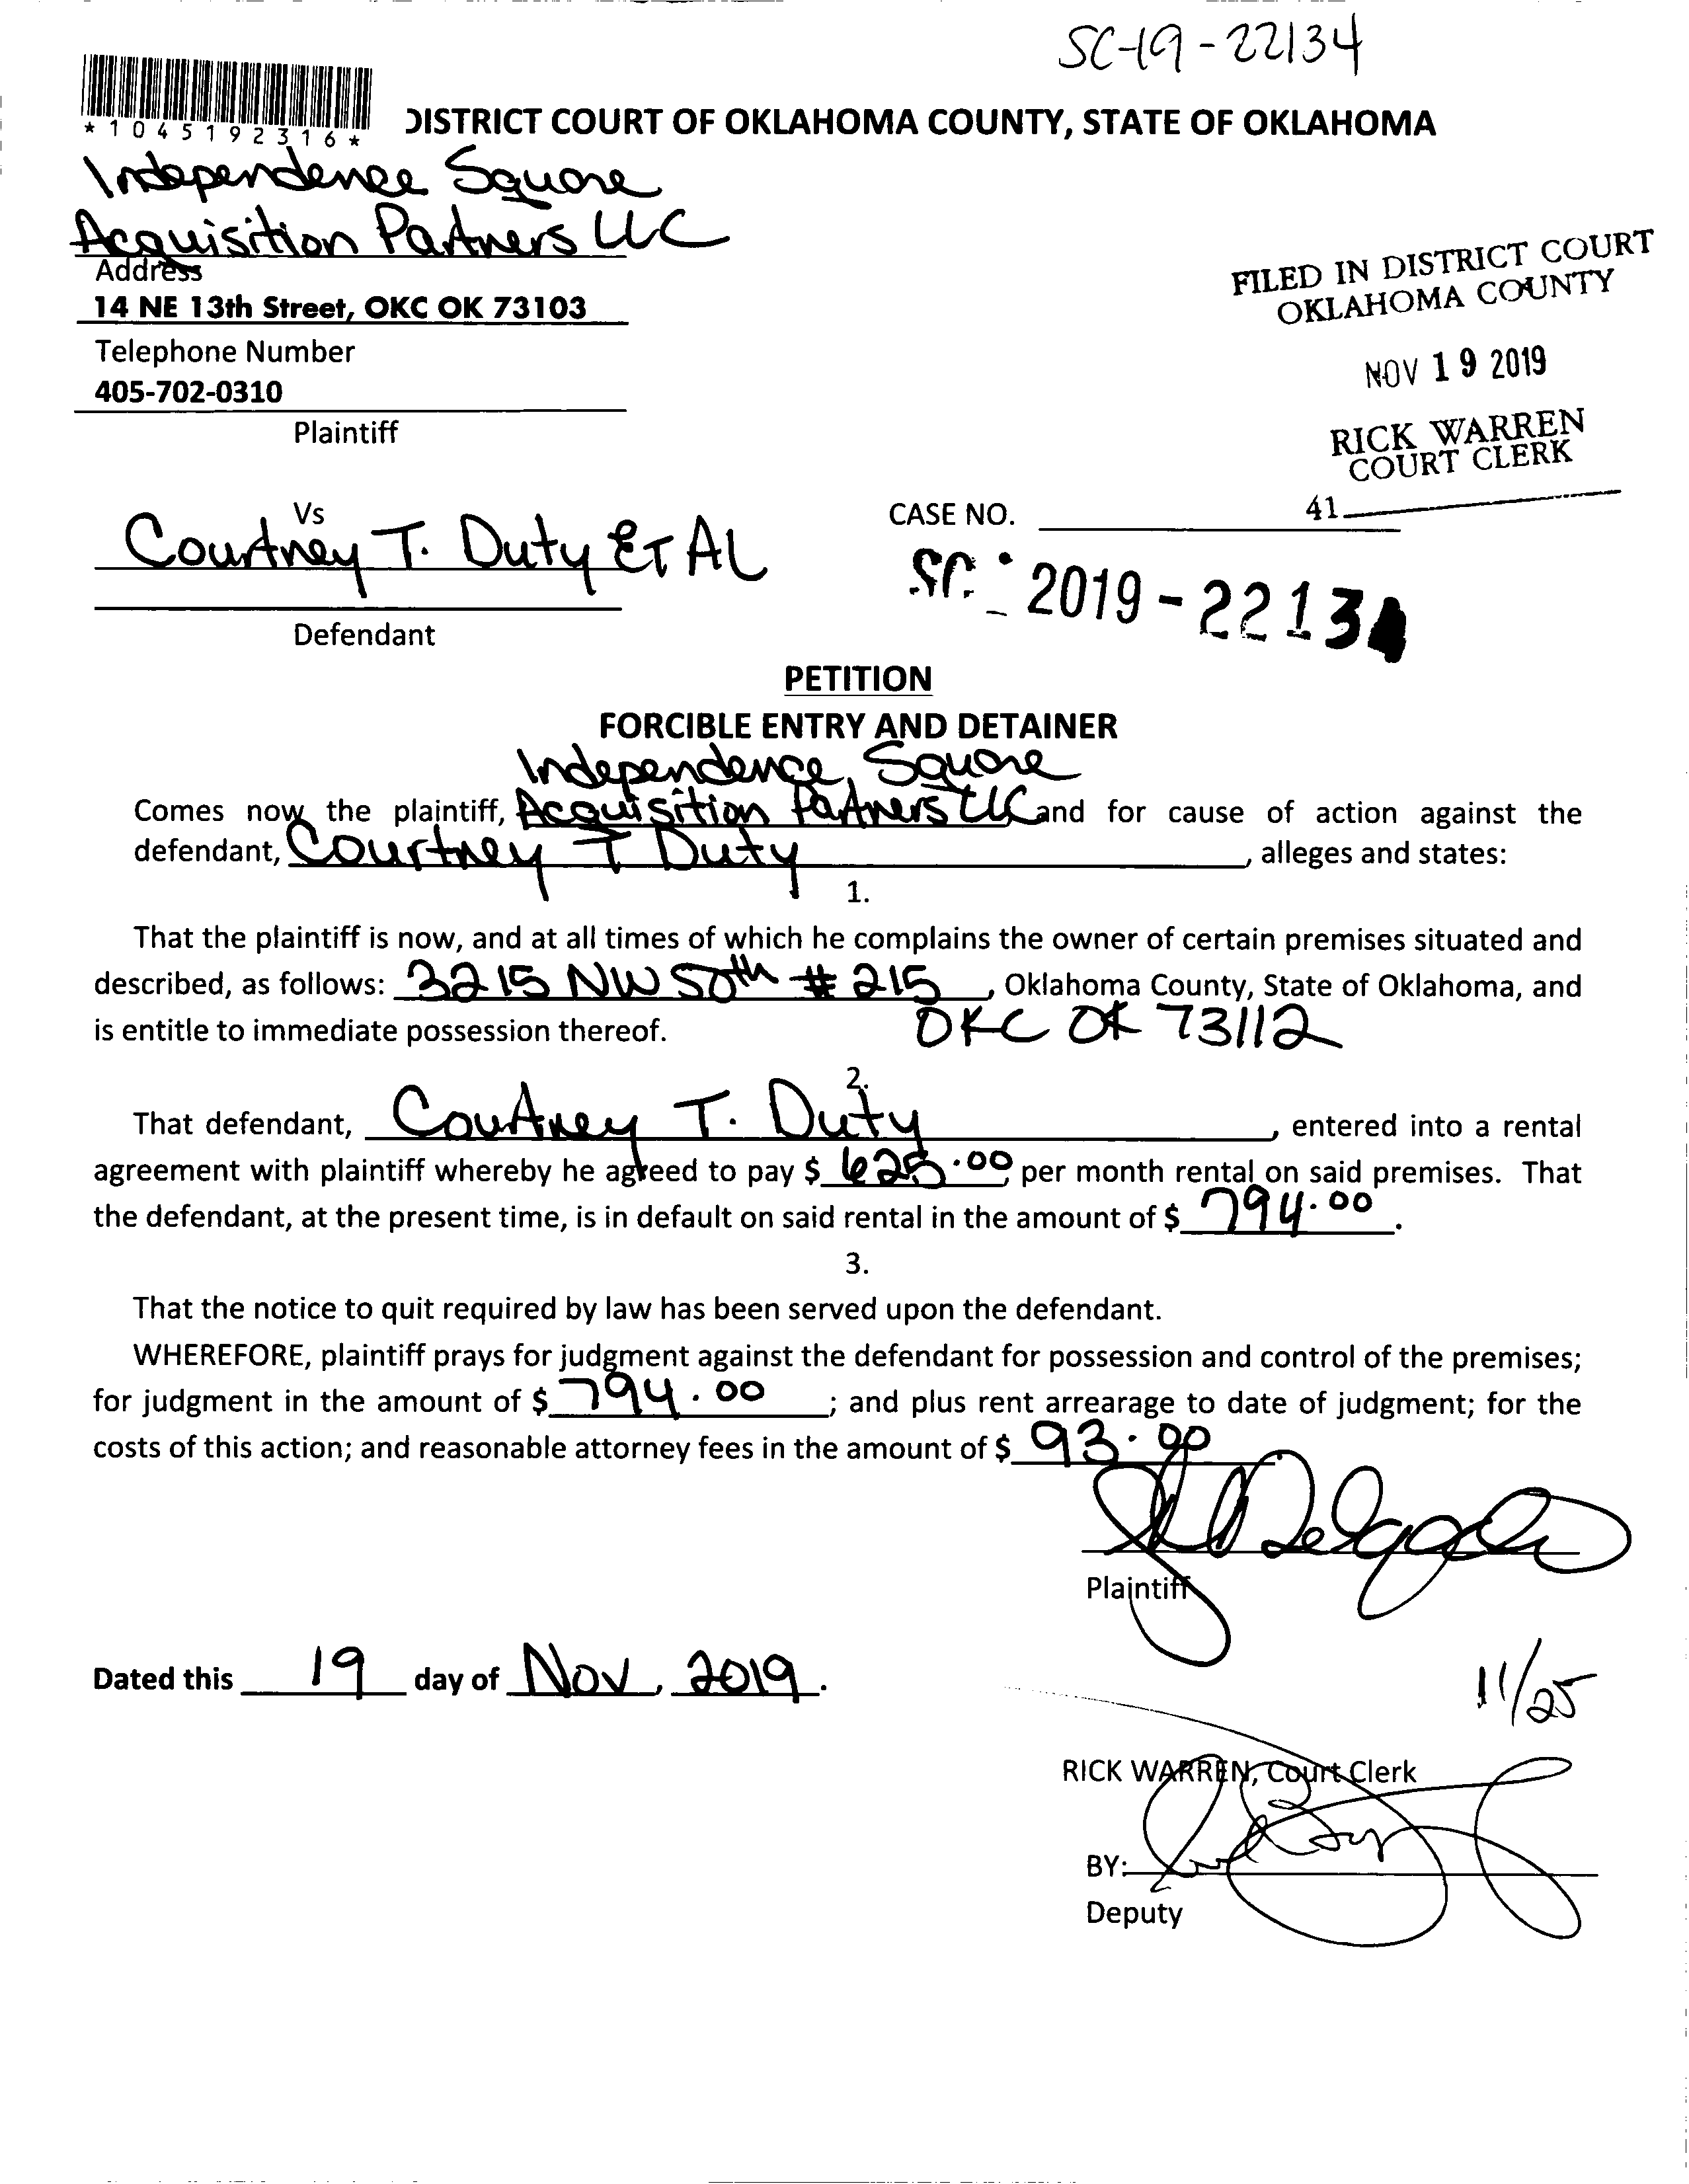 SC-19-22134
*1045192316*
DISTRICT COURT OF OKLAHOMA COUNTY, STATE OF OKLAHOMA
Independence Square
Acquisition Partners LLC
Address
14 NE 13th Street, OKC OK 73103
Telephone Number
405-702-0310
Plaintiff
FILED IN DISTRICT COURT
OKLAHOMA COUNTY
NOV 19 2019
RICK WARREN
COURT CLERK
41
Vs
Courtney T. Duty ET AL
Defendant
CASE NO.
SC - 2019 - 22134
PETITION
FORCIBLE ENTRY AND DETAINER
Independence Square
Comes now the plaintiff, Acquisition Partners LLC and for cause of action against the
defendant, Courtney T Duty, alleges and states:
1.
That the plaintiff is now, and at all times of which he complains the owner of certain premises situated and
described, as follows: 3215 NW 50th # 215, Oklahoma County, State of Oklahoma, and
is entitle to immediate possession thereof. OKC OK 73112
2.
That defendant, Courtney T. Duty, entered into a rental
agreement with plaintiff whereby he agreed to pay $ 625.00 per month rental on said premises. That
the defendant, at the present time, is in default on said rental in the amount of $ 794.00.
3.
That the notice to quit required by law has been served upon the defendant.
WHEREFORE, plaintiff prays for judgment against the defendant for possession and control of the premises;
for judgment in the amount of $ 794.00; and plus rent arrearage to date of judgment; for the
costs of this action; and reasonable attorney fees in the amount of $ 93.00
Plaintiff
Dated this 19 day of Nov, 2019.
11/25
RICK WARREN, Court Clerk
BY:
Deputy